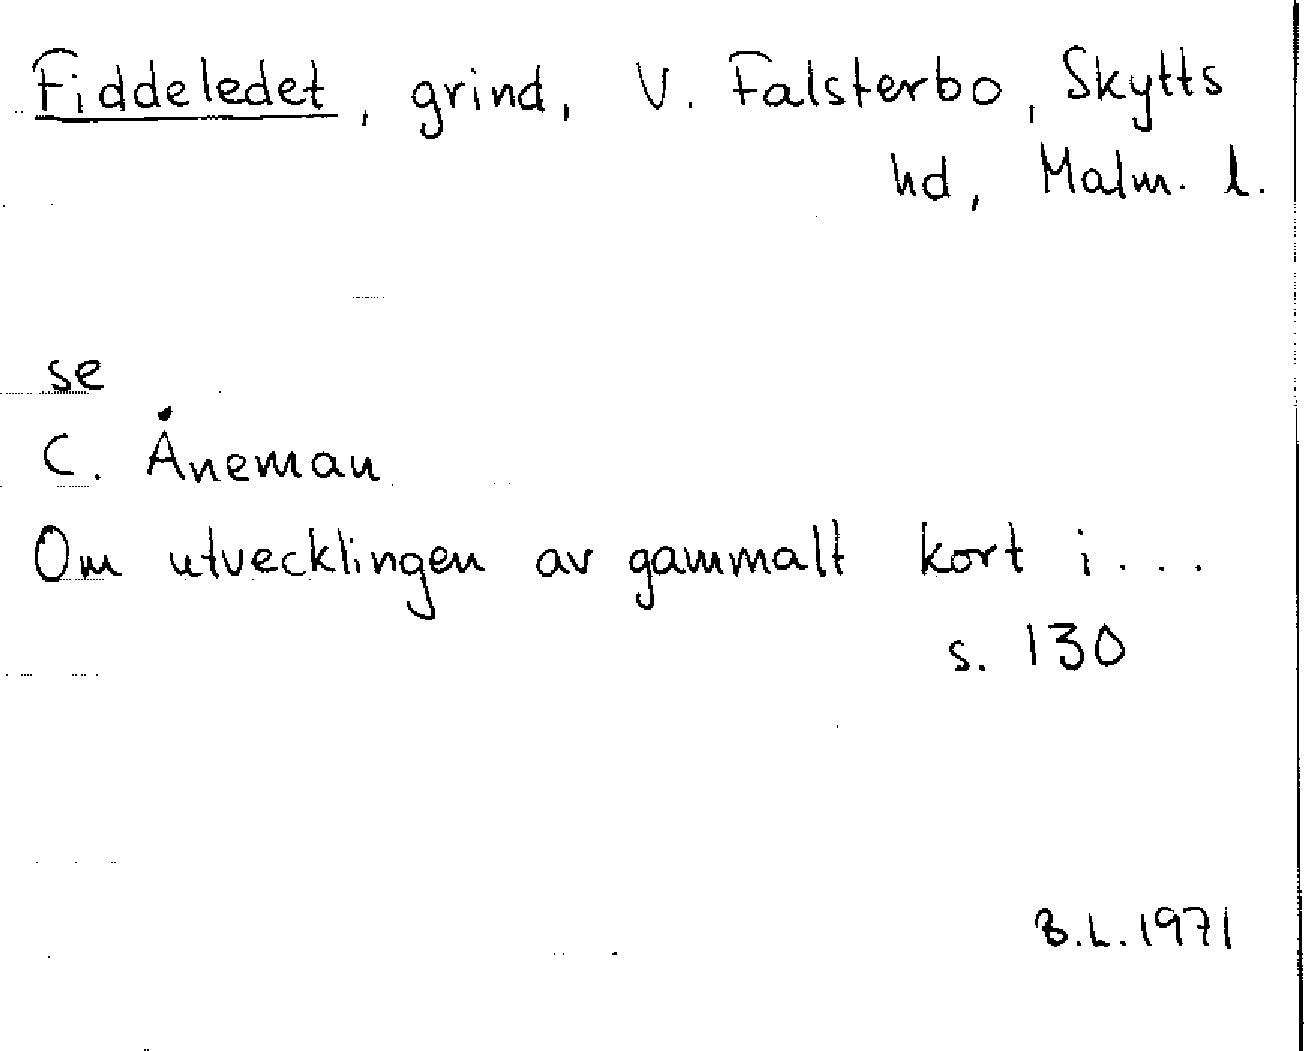 Fiddeledet, grind, V. Falsterbo, Skytts
hd, Malm. l.
se
C. Åneman
Om utvecklingen av gammalt kort i...
s. 130
B.L.1971